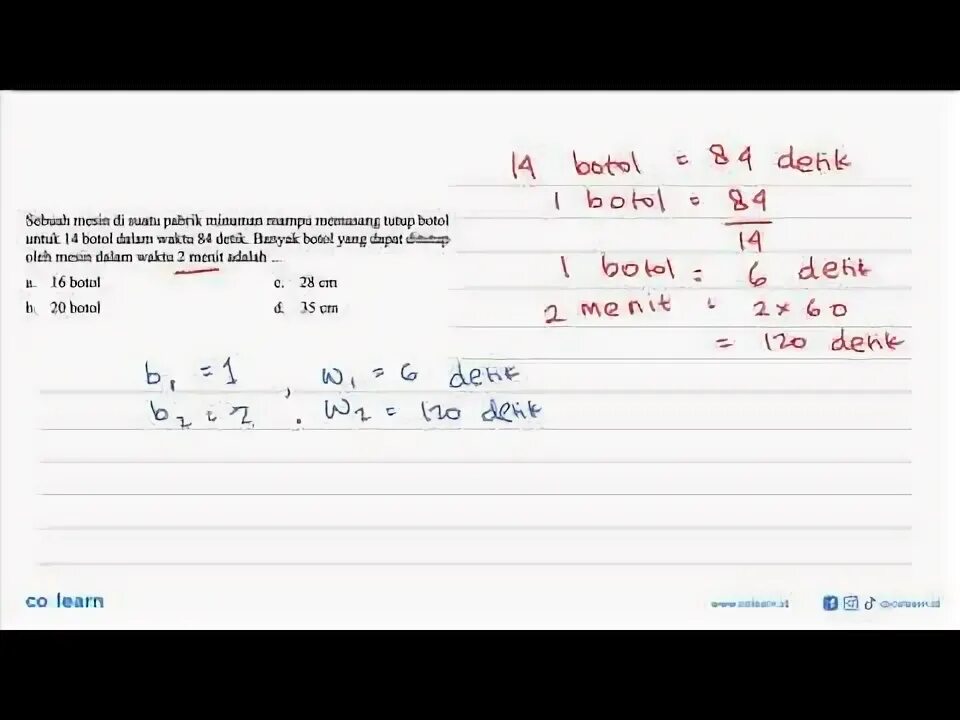 Sebuah mesin di suatu pabrik minuman mampu memasang tutup botol
untuk 14 botol dalam waktu 84 detik. Banyak botol yang dapat
oleh mesin dalam waktu 2 menit adalah ...
a. 16 botol
c. 28 cm
b. 20 botol
d. 35 cm
14 botol = 84 detik
1 botol = 84
14
1 botol = 6 detik
2 menit : 2 x 60
= 120 detik
b1 = 1 , w1 = 6 detik
b2 = 2 . w2 = 120 detik
co learn